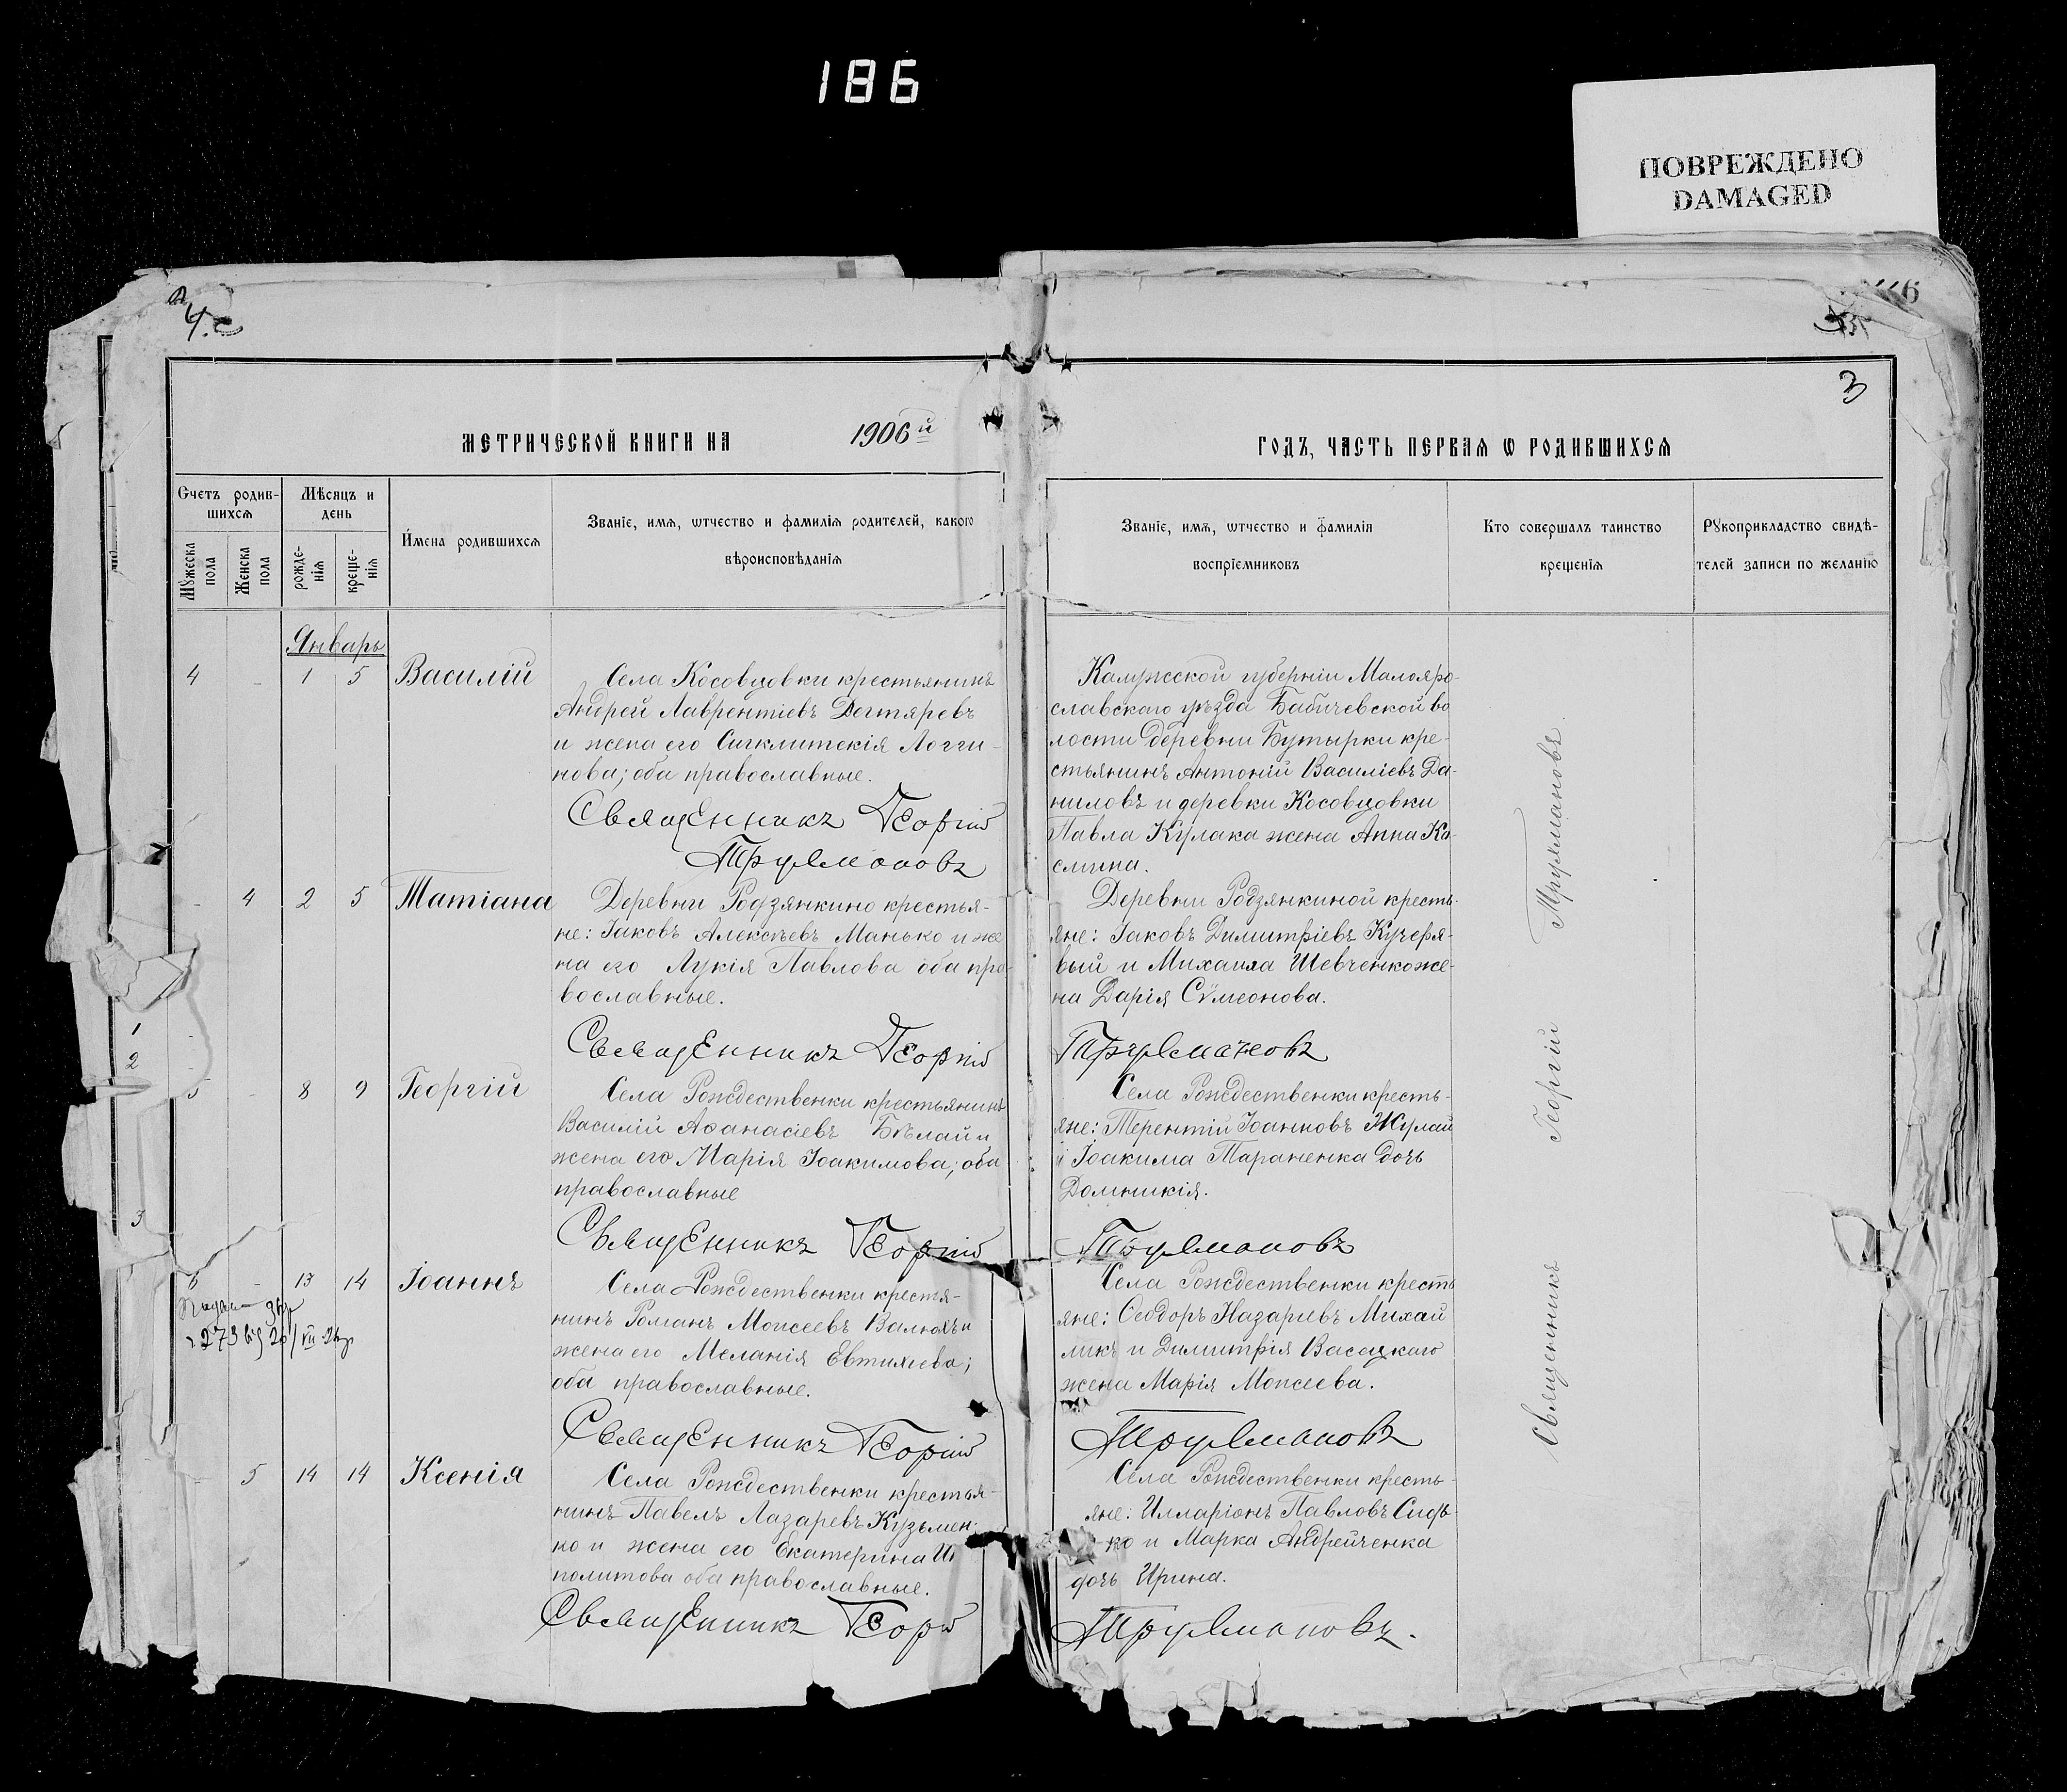 186
ПОВРЕЖДЕНО
DAMAGED
4.
3
МЕТРИЧЕСКОЙ КНИГИ НА 1906й
ГОДЪ, ЧАСТЬ ПЕРВАЯ Ѡ РОДИВШИХСЯ
Счетъ родив-
шихсѧ
Мѣсяцъ и
день
Мꙋжеска
пола
Женска
пола
рожде-
нія
креще-
нія
Имена родившихсѧ
Званіе, имѧ, ѡтчество и фамилія родителей, какого
вѣроисповѣданія
Званіе, имѧ, ѡтчество и фамилія
воспріемниковъ
Кто совершалъ таинство
крещенія
Рꙋкоприкладство свидѣ-
телей записи по желанію
Январь
4 - 1 5 Василій
Села Косовцовки крестьянинъ
Андрей Лаврентіевъ Дегтяревъ
и жена его Сигклитекія Логги-
нова; оба православные.
Священникъ Георгій
Труxмановъ
Калужской губерніи Малояро-
славскаго уѣзда Бабичевской во
лости деревни Бутырки кре-
стьянинъ Антоній Василіевъ Да-
ниловъ и деревки Косовцовки
Павла Кулака жена Анна Ко-
смина.
- 4 2 5 Татіана
Деревни Родзянкино крестья-
не: Іаковъ Алексѣевъ Манько и же
на его Лукія Павлова оба пра-
вославные.
Священникъ Георгій
Деревни Родзянкиной кресть-
яне: Іаковъ Димитріевъ Кучеря-
вый и Михаила Шевченко же-
на Дарія Сѵмеонова.
Трухмановъ
1
2
5 - 8 9 Георгій
Села Рождественки крестьянинъ
Василій Аѳанасіевъ Бѣлай и
жена его Марія Іоакимова; оба
православные
Священникъ Георгій
Села Рождественки кресть-
яне: Терентій Іоанновъ Жулай
и Іоакима Тараненка дочь
Домникія.
Трухмановъ
3
6 - 13 14 Іоаннъ
Села Рождественки крестья-
нинъ Романъ Моисеевъ Валюхъ и
жена его Меланія Евтихіева;
оба православные.
Священникъ Георгій
Села Рождественки кресть
яне: Ѳеодоръ Назаріевъ Михай
ликъ и Димитрія Васецкаго
жена Марія Моисеева.
Трухмановъ
- 5 14 14 Ксенія
Села Рождественки крестья-
нинъ Павелъ Лазаревъ Кузьмен-
ко и жена его Екатерина И
политова оба православные.
Священникъ Георгій
Села Рождественки кресть-
яне: Илларіонъ Павловъ Сидь-
ко и Марка Андрейченка
дочь Ирина.
Трухмановъ.
Священникъ Георгій Трухмановъ